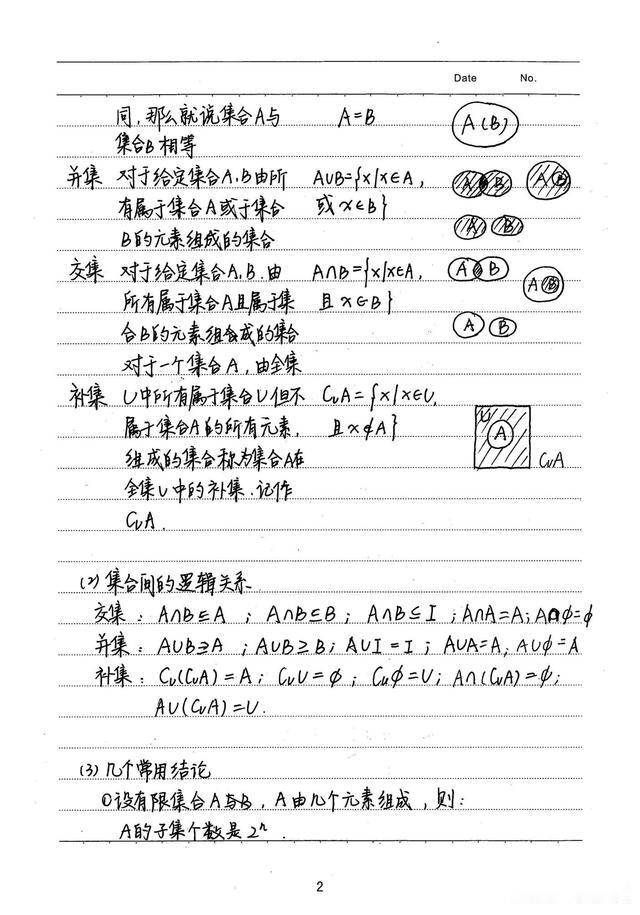 Date No.
同,那么就说集合A与 A=B A(B)
集合B相等
并集 对于给定集合A,B由所 A∪B={x|x∈A, A B A B
有属于集合A或于集合 或x∈B}
B的元素组成的集合 A B
交集 对于给定集合A,B.由 A∩B={x|x∈A, A B
所有属于集合A且属于集 且x∈B} A B
合B的元素组合成的集合 A B
对于一个集合A,由全集
补集 U中所有属于集合U但不 CuA={x|x∈U, U
属于集合A的所有元素, 且x∉A} A
组成的集合称为集合A在 CuA
全集U中的补集.记作
CuA.
(2)集合间的逻辑关系
交集:A∩B⊆A;A∩B⊆B;A∩B⊆I;A∩A=A;A∩φ=φ
并集:A∪B⊇A;A∪B⊇B;A∪I=I;A∪A=A,A∪φ=A
补集:Cu(CuA)=A;CuU=φ;Cuφ=U;A∩(CuA)=φ;
A∪(CuA)=U.
(3)几个常用结论
①设有限集合A与B,A由几个元素组成,则:
A的子集个数是2ⁿ.
2